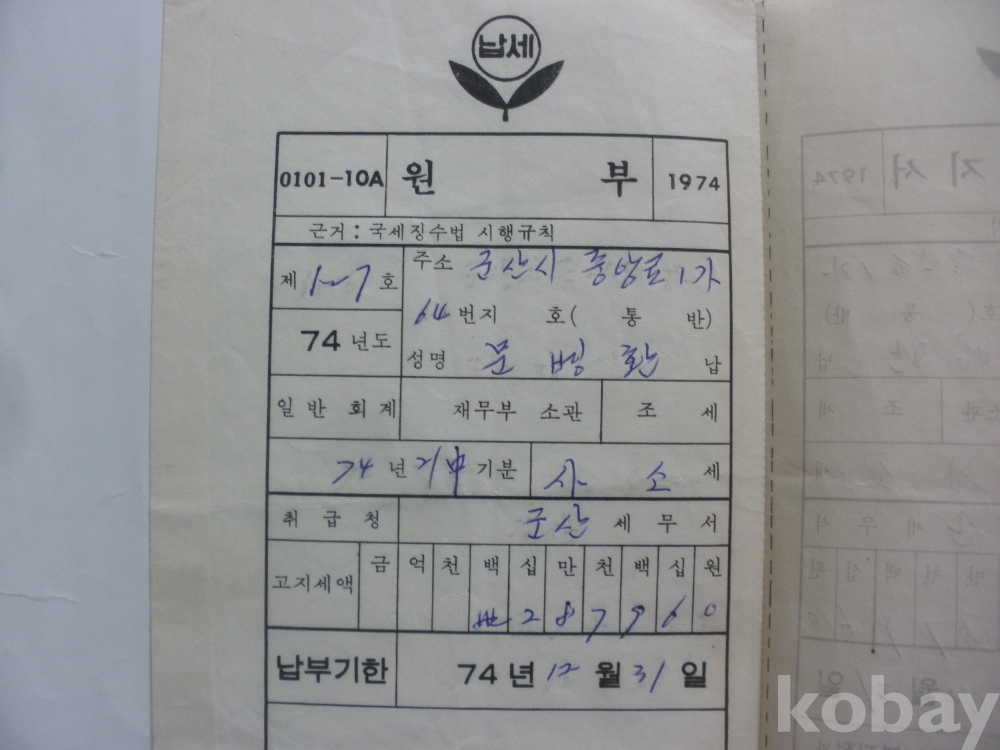 납세
0101-10A 원 부 1974
근거 : 국세징수법 시행규칙
제 1-7 호
주소 군산시 중앙로 1가
64 번지 호( 통 반)
74 년도
성명 문 병 환 납
일반 회계 재무부 소관 조 세
74 년 수시 기분 사 소 세
취 급 청 군산 세 무 서
고지세액 금 억 천 백 십 만 천 백 십 원
2 8 7 9 6 0
납부기한 74 년 12 월 31 일
kobay